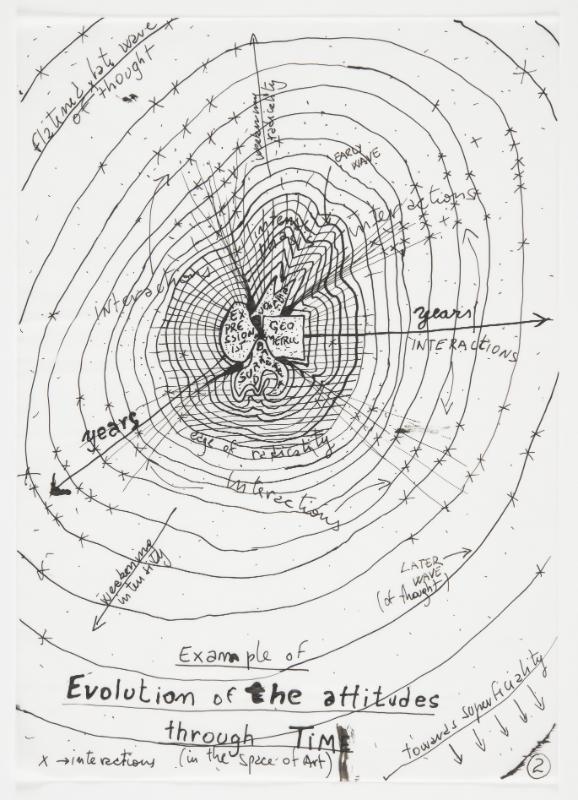 flatened, late wave
of thought
weakening
radicality
EARLY
WAVE
intense
interactions
interactions
EX
PRE
SSION
IST
GEO
METRIC
years
INTERACTIONS
years
age of radicality
interactions
weakening
intensity
LATER
WAVE
(of thought)
Example of
Evolution of the attitudes
through TIME
x → interactions (in the space of Art)
towards superficiality
2